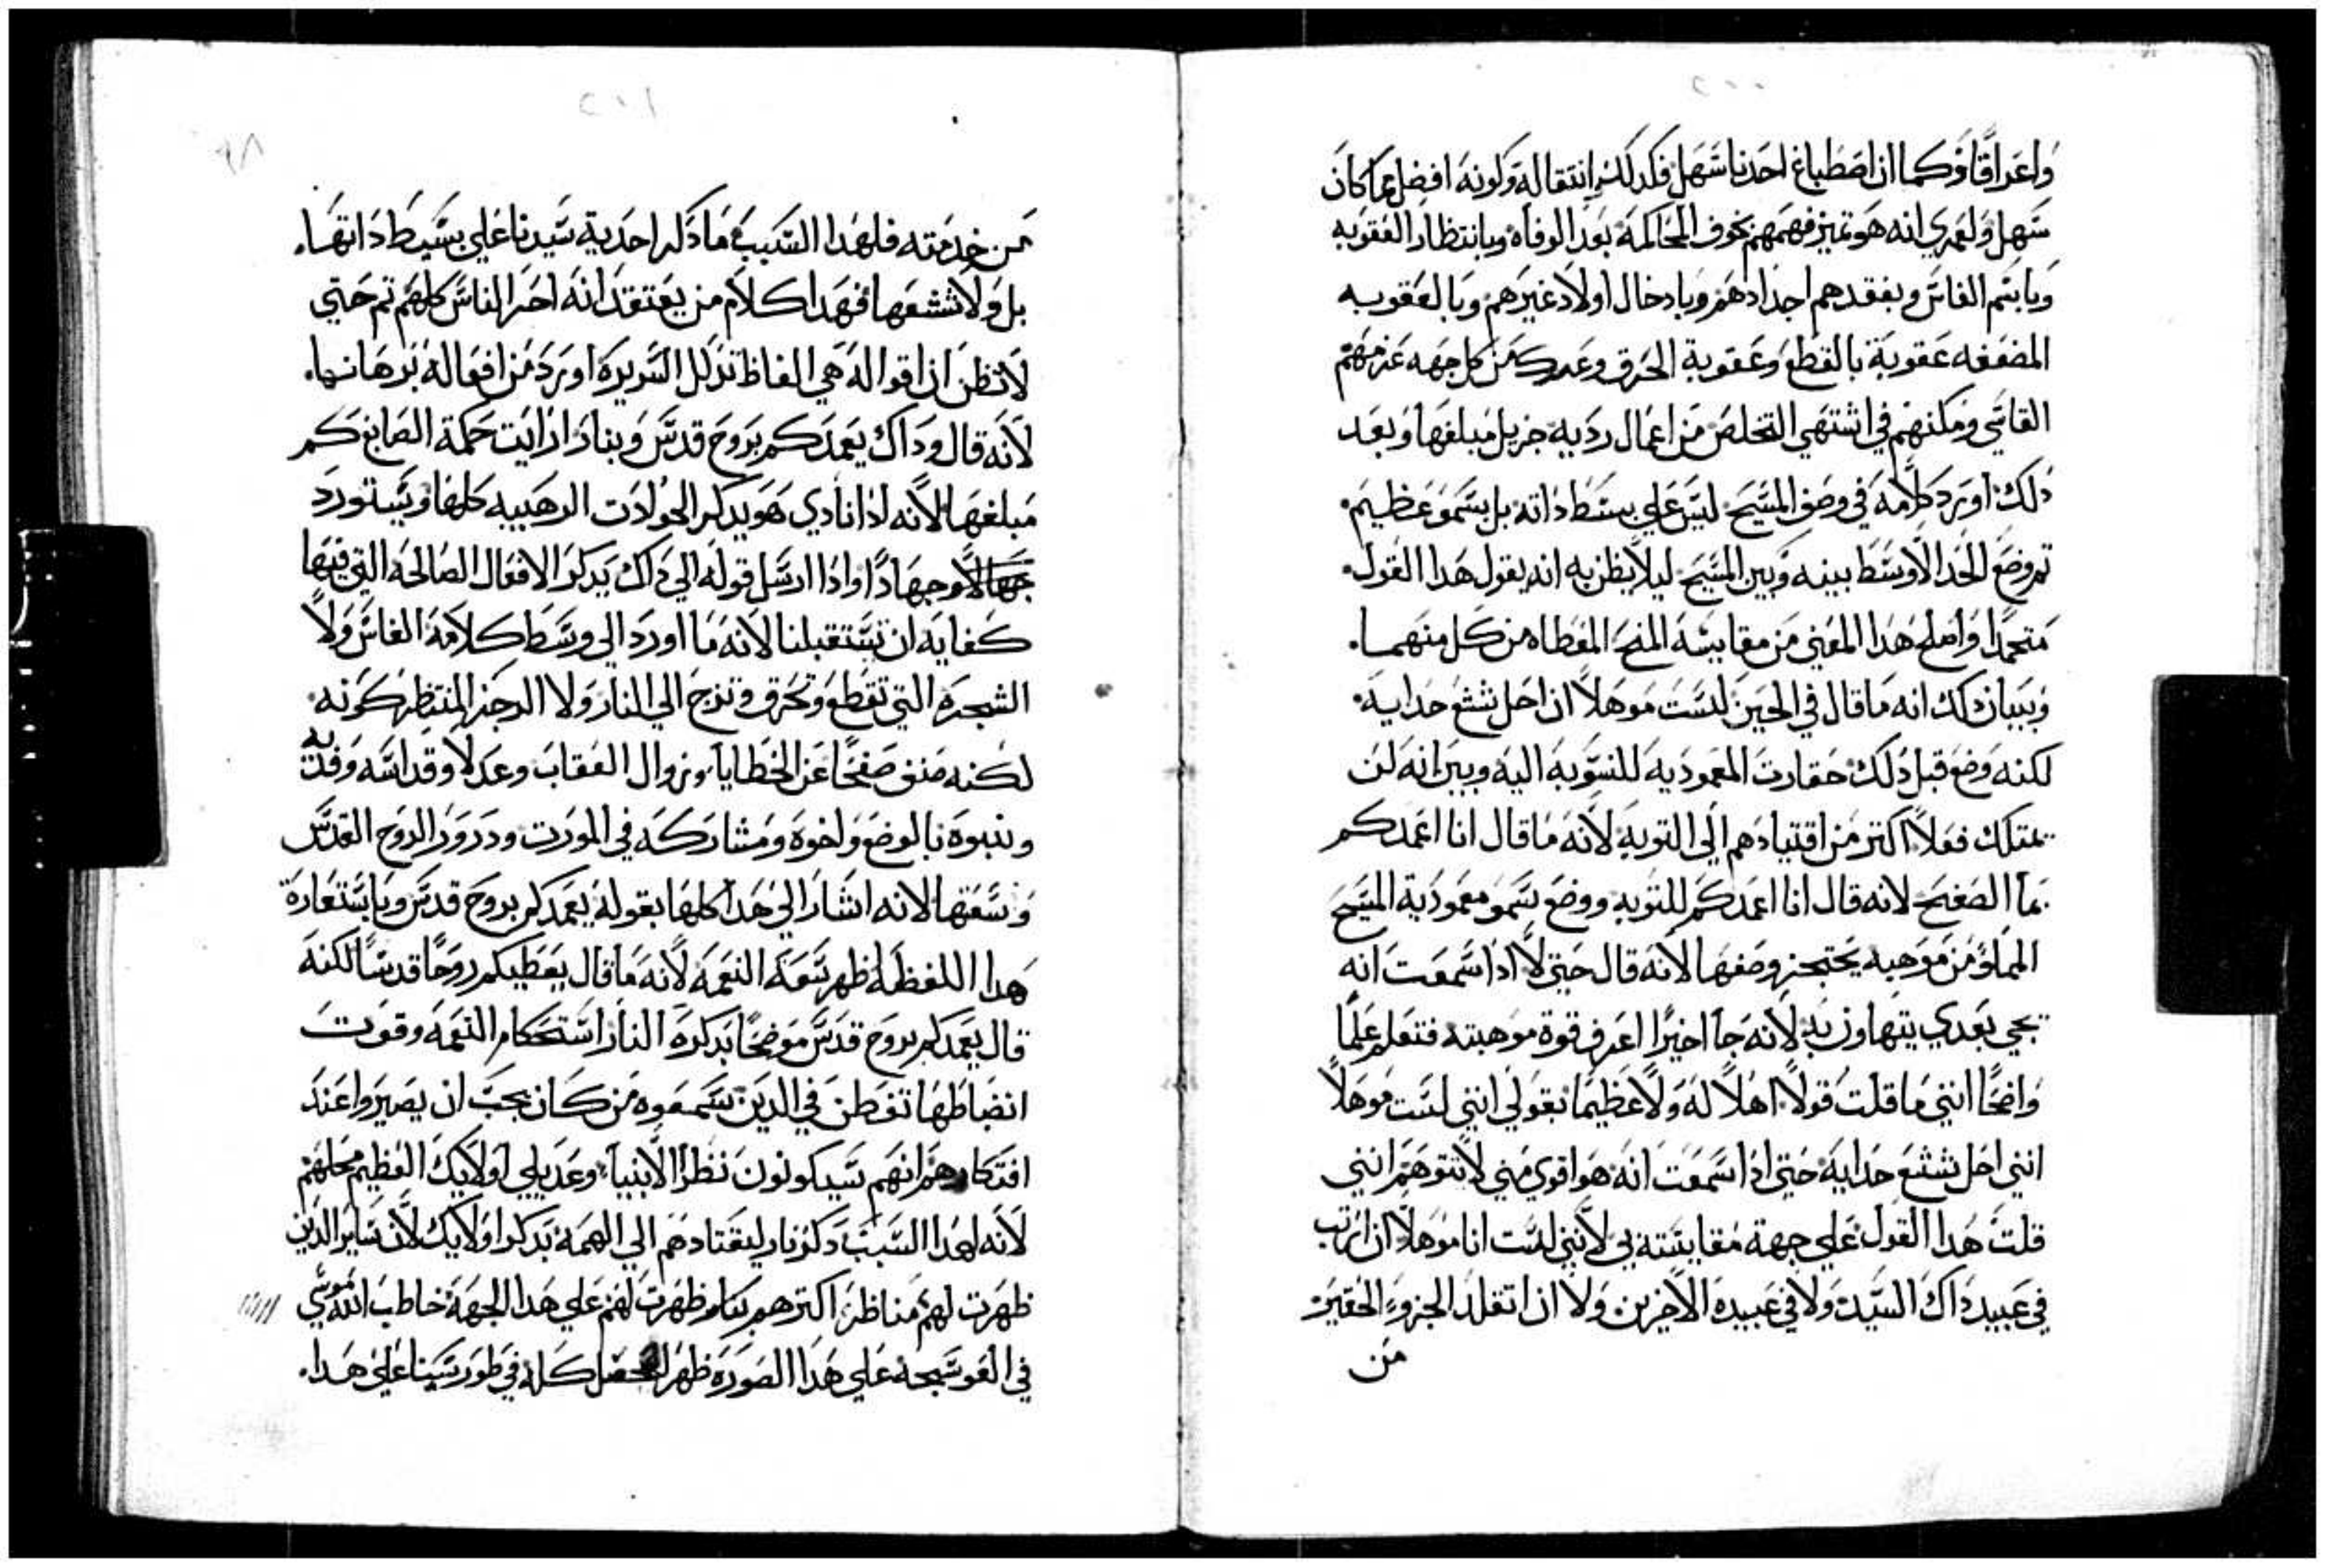 واعراقًا وكما ان اصطباغ احدنا سهل فكدلك انتقاله وكونه افضل مما كان
سهل ولعمري انه هو تميز فهمهم بخوف المحاكمه بعد الوفاه وبانتظار العقوبه
وبابتم الفاس وبفقدهم اجدادهم وبادخال اولاد غيرهم وبالعقوبه
المضعفه عقوبة بالقطع وعقوبة الحرق وعرك من كل جهه عزمهم
القاسي ومكنهم في اشتهي التخلص من اعمال رديه جزيل مبلغها وبعد
دلك اورد كلامه في وصف المسيح ليس علي بسط داته بل بسمو عظيم
تم وضع الحد الاوسط بينه وبين المسيح ليلا يظن به انه يقول هدا القول
متحمدا واصلح هدا المعني من مقايسة المنح المعطاه من كل منهما
وببيان دلك انه ما قال في الحين لست موهلا ان احل شثع حدايه
لكنه وضع قبل دلك حقارت المعموديه المنسوبه اليه وبين انه لن
يمتلك فعلا اكتر من اقتيادهم الي التوبه لانه ما قال انا اعمدكم
بما الصفح لانه قال انا اعمدكم للتوبه ووضع سمو معمودية المسيح
المملوه من موهبه يحتجز وصفها لانه قال حتي لا ادا سمعت انه
يجي بعدي يتهاون به لانه جا اخيرًا اعرف قوة موهبته فتعلم علمًا
واضحًا انني ما قلت قولا اهلا له ولا عظيمًا بقولي انني لست موهلا
انني احل شثع حدايه حتي ادا سمعت انه هو اقوي مني لا تتوهم انني
قلت هدا القول علي جهة مقايسته بي لانني لست انا موهلا ان ارتب
في عبيد داك السيد ولا في عبيده الاخيرين ولا ان اتقلد الجزوء الحقير
من
من خدمته فلهدا السبب ما دكر احدية سيدنا علي بسيط داتها
بل ولا شثعها فهدا كلام من يعتقد انه احر الناس كلهم تم حتي
لا تظن ان اقواله هي الفاظ تدلل السريره اورد من افعاله برهانها
لانه قال وداك يعمدكم بروح قدس وبنار ارايت حكمة الصابغ كم
مبلغها لانه ادا نادي هو يدكر الحوادت الرهيبه كلها ويستورد
جهالا وجهادًا وادا ارسل قوله الي داك يدكر الافعال الصالحه التي فيها
كفايه ان تستقبلنا لانه ما اورد الي وسط كلامه الفاس ولا
الشجره التي تقطع وتحرق وتزج الي النار ولا الرجز المنتظر كونه
لكنه ضمن صفحًا عن الخطايا وزوال العقاب وعدلا وقداسه وفديه
وبنبوة بالوضع واخوه ومشاركه في المورت ودرور الروح القدس
وسعتها لانه اشار الي هدا كلها بقوله يعمدكم بروح قدس وباستعارة
هدا اللفظه اظهر سعة النعمه لانه ما قال يعطيكم روحًا قدسًا لكنه
قال يعمدكم بروح قدس موضحًا بدكره النار استحكام النعمه وقوت
انضباطها تفطن في الدين سمعوه من كان يجب ان يصيروا عند
افتكارهم انهم سيكونون نظرا الانبيا وعديلي اولايك العظيم محلهم
لانه لهدا السبب دكر نار ليقتادهم الي الهمه بدكر اولايك لان ساير الدين
ظهرت لهم مناظر اكترهم بنار ظهرت لهم علي هدا الجهة خاطب الله موسي
في العوسجه علي هدا الصوره ظهر للمحفل كله في طور سينا علي هدا